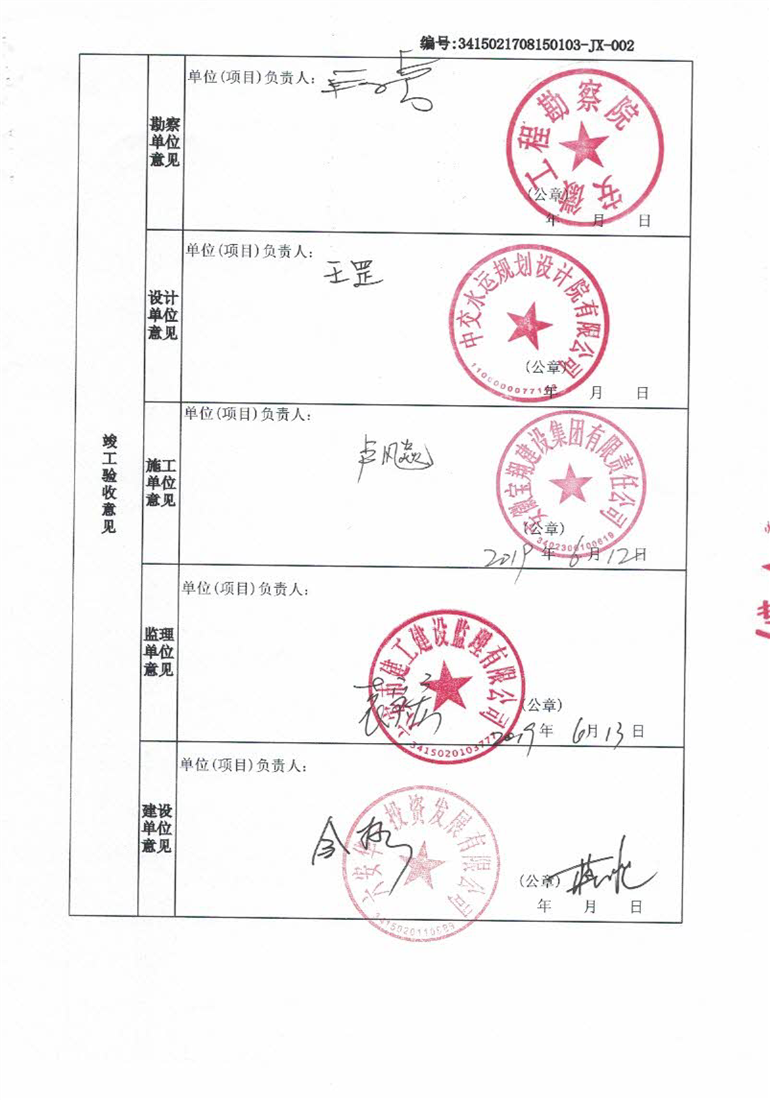 编号:3415021708150103-JX-002
竣工验收意见
勘察单位意见
单位(项目)负责人:
安徽工程勘察院
(公章)
年 月 日
设计单位意见
单位(项目)负责人:
王罡
中交水运规划设计院有限公司
(公章)
年 月 日
施工单位意见
单位(项目)负责人:
安徽宝翔建设集团有限责任公司
3402300100619
(公章)
2019年6月12日
监理单位意见
单位(项目)负责人:
市建工建设监理有限公司
(公章)
2019年6月13日
建设单位意见
单位(项目)负责人:
六安华 投资发展有限公司
(公章)
年 月 日